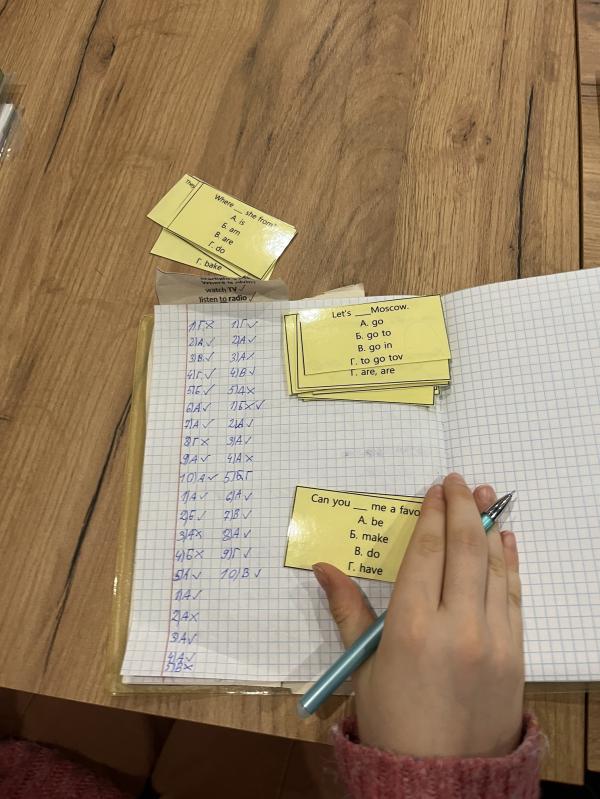 They
Where __ she from?
А. is
Б. am
В. are
Г. do
Г. bake
watch TV ✓
listen to radio ✓
Let's ___Moscow.
А. go
Б. go to
В. go in
Г. to go tov
Г. are, are
Can you __ me a favo
А. be
Б. make
В. do
Г. have
1)Г× 1)Г✓
2)А✓ 2)А✓
3)В✓ 3)А×
4)Г✓ 4)В✓
5)Б✓ 5)А×
6)А✓ 1)Б×✓
7)А✓ 2)А✓
8)Г× 3)А✓
9)А✓ 4)А×
10)А✓ 5)Б Г
1)А✓ 6)А✓
2)Б✓ 7)В✓
3)А× 8)А✓
4)Б× 9)Г✓
5)А✓ 10)В✓
1)А✓
2)А×
3)А✓
4)А✓
5)В×